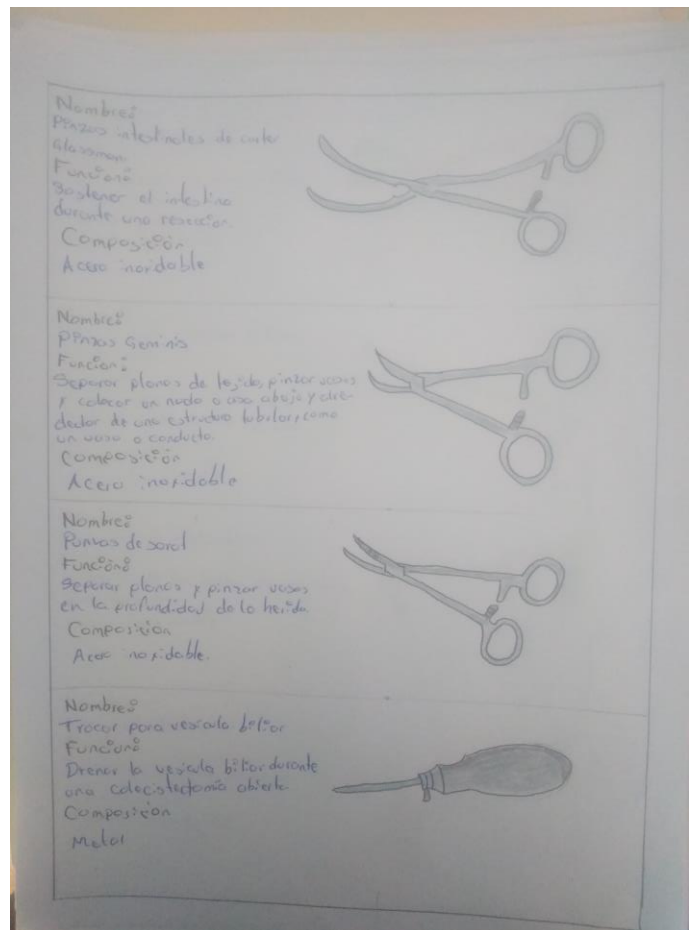 Nombre:
Pinzas intestinales de corte
Glassman
Función:
Sostener el intestino
durante una resección.
Composición
Acero inoxidable
Nombre:
Pinzas Geminis
Función:
Separar planos de tejido, pinzar vasos
y colocar un nudo o asa abajo y alre-
dedor de una estructura tubular, como
un vaso o conducto.
Composición
Acero inoxidable
Nombre:
Pinzas de sarot
Función:
Separar planos y pinzar vasos
en la profundidad de la herida
Composición
Acero inoxidable.
Nombre:
Trocar para vesicula biliar
Función:
Drenar la vesicula biliar durante
una colecistectomía abierta.
Composición
Metal